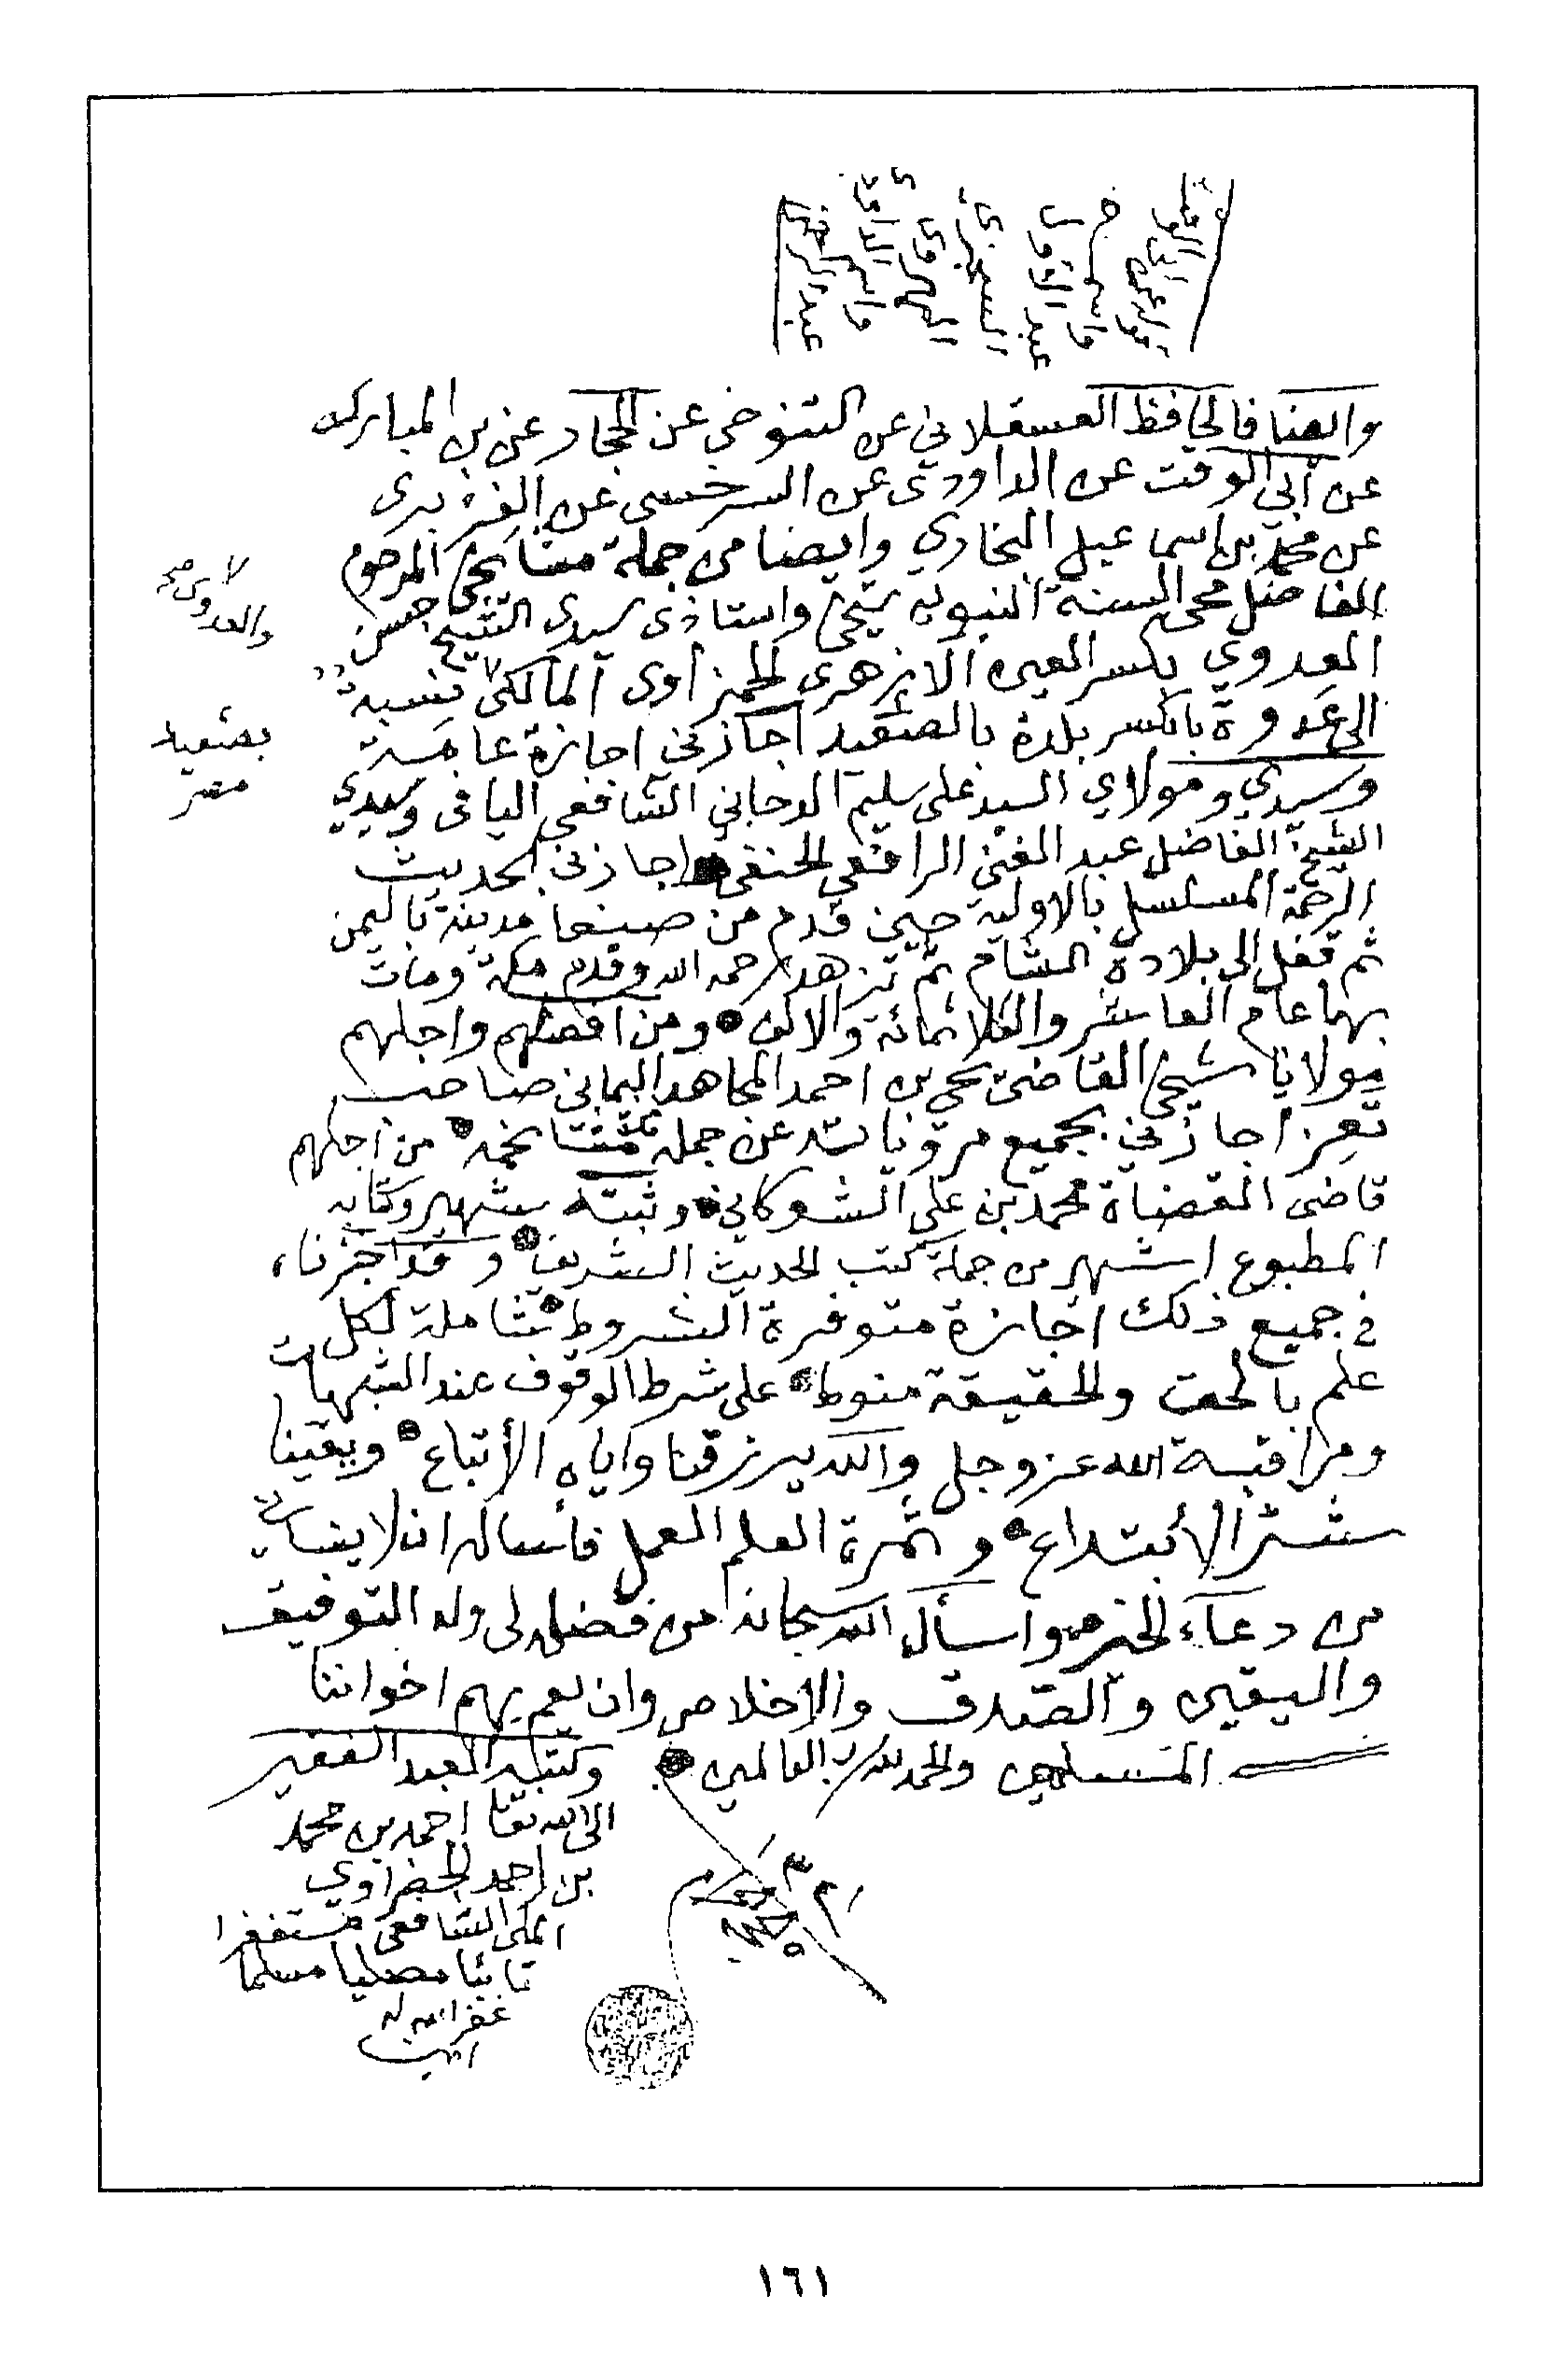 وايضا فالحافظ العسقلاني عن التنوخي عن الحجار عن بن المبارك
عن أبي الوقت عن الداودى عن السرخسى عن الفربرى
عن محمد بن اسماعيل البخاري وايضا من جملة مشايخى المرحوم
الفاضل محى السنة النبويه شيخى واستاذى سيدى الشيخ حسن
العدوي بكسر العين الازهرى الحمزاوى المالكى نسبة
الى عدوة بالكسر بلدة بالصعيد اجازني اجازة عامة
والعدوى
بصعيد
مصر
وسيدي ومولاي السيد على سليم الدجاني الشافعي اليافى وسيدي
الشيخ الفاضل عبد الغني الرافعي الحنفى اجازنى بحديث
الرحمة المسلسل بالاولية حين قدم من صنعا مدينة باليمن
ثم قفل الى بلاده الشام ثم تزهد رحمه الله وقدم مكة ومات
بها عام العاشر والثلاثمائة والالف ومن افضلهم واجلهم
مولانا شيخى القاضى يحي بن احمد المجاهد اليمانى صاحب
تعز اجازني بجميع مروياته عن جملة مشايخه من اجلهم
قاضى القضاة محمد بن علي الشوكاني وثبته شهير وكتابه
المطبوع اشهر من جملة كتب الحديث الشريف وقد اجزناه
في جميع ذلك اجازة متوفرة الشروط شاملة لكل
علم بالحق والحقيقة منوط على شرط الوقوف عند الشبهات
ومراقبة الله عز وجل والله يرزقنا واياه الأتباع ويقينا
شر الأبتداع وثمرة العلم العمل فأساله ان لا ينساني
من دعاء الخير واسأل الله سبحانه من فضله لى وله التوفيق
واليقين والصدق والاخلاص وان يعم بهم اخواننا
المسلمين والحمد لله رب العالمين وكتبه العبد الفقير
الى الله تعا احمد بن محمد
بن احمد الحضراوي
المكى الشافعى مستغفرا
تائبا مصليا مسلما
غفر الله له
امين
١٦١